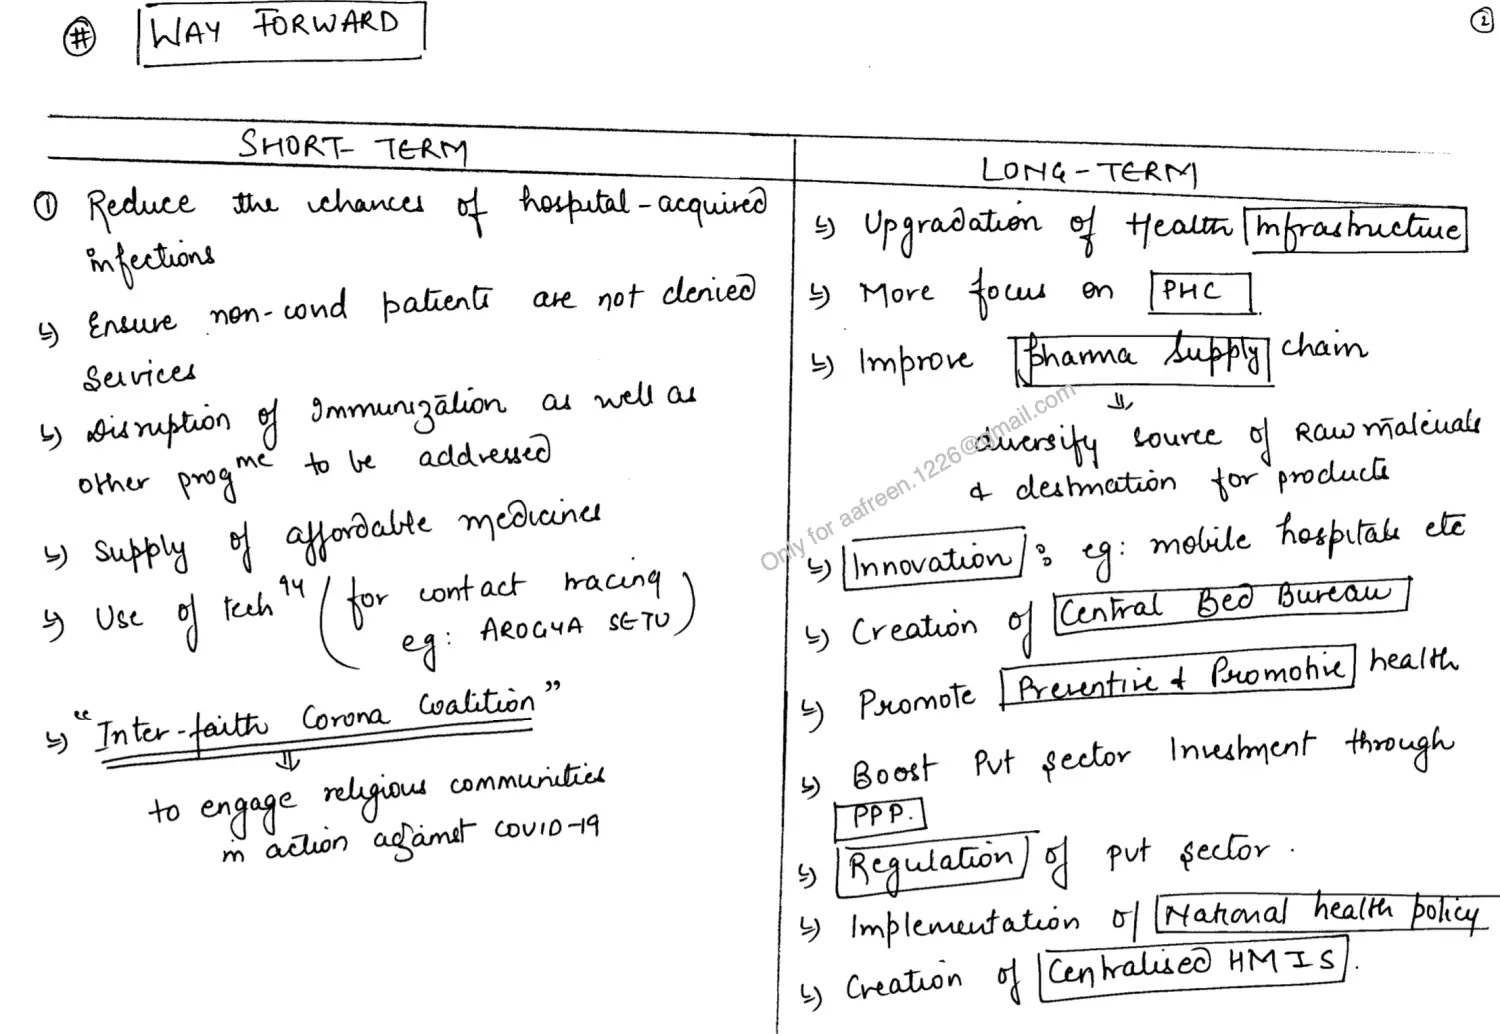 # WAY FORWARD
2
SHORT-TERM
① Reduce the chances of hospital-acquired
infections
↳ Ensure non-covid patients are not denied
Services
↳ Disruption of Immunization as well as
other progmme to be addressed
↳ Supply of affordable medicines
↳ Use of techgy (for contact tracing
eg: AROGYA SETU)
↳ "Inter-faith Corona Coalition"
⇓
to engage religious communities
in action against COVID-19
LONG-TERM
↳ Upgradation of Health Infrastructure
↳ More focus on PHC
↳ Improve pharma supply chain
⇓
diversify source of Raw materials
& destination for products
↳ Innovation : eg: mobile hospitals etc
↳ Creation of Central Bed Bureau
↳ Promote Preventive & Promotive health
↳ Boost Pvt sector Investment through
PPP.
↳ Regulation of pvt sector.
↳ Implementation of National health policy
↳ Creation of Centralised HMIS.
Only for aafreen.1226@gmail.com